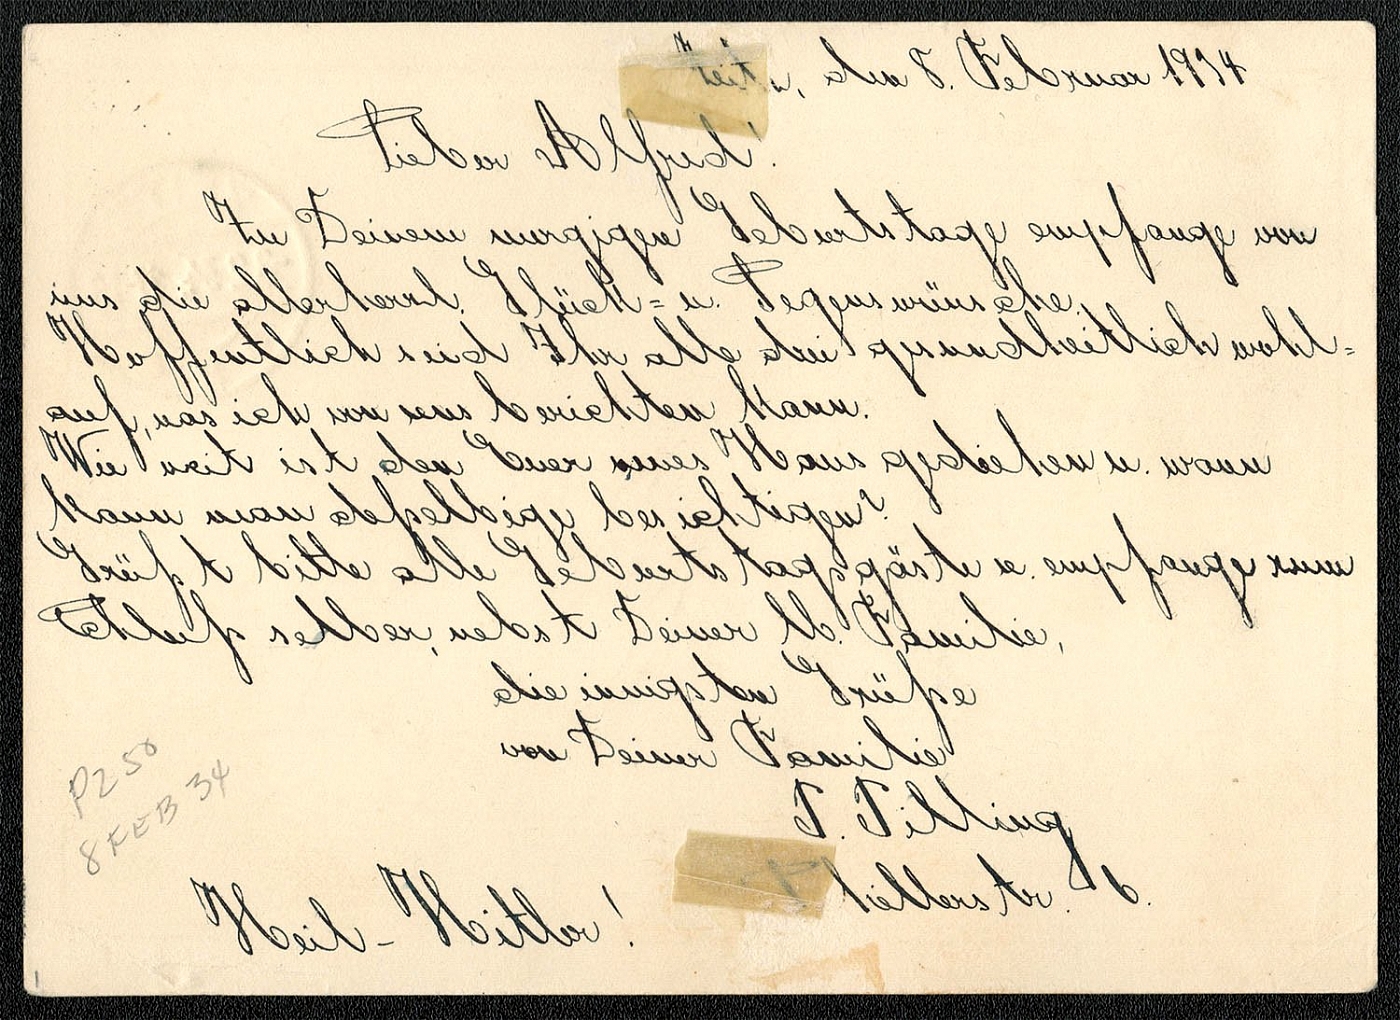 Zeitz, den 8. Februar 1934
Lieber Alfred!
Zu Deinem morgigen Geburtstage empfange von
uns die allerherzl. Glück= u. Segenswünsche.
Hoffentlich seid Ihr alle drei gesundheitlich wohl=
auf, was ich von uns berichten kann.
Wie weit ist den Euer neues Haus gediehen u. wann
kann man daßelbige besichtigen?
Grüßt bitte alle Geburtstagsgäste u. empfange zum
Schluß selber, nebst Deiner lb. Familie,
die innigsten Grüße
von Deiner Familie
Tilling
str. 6.
Heil - Hitler!
P2 50
8 FEB 34